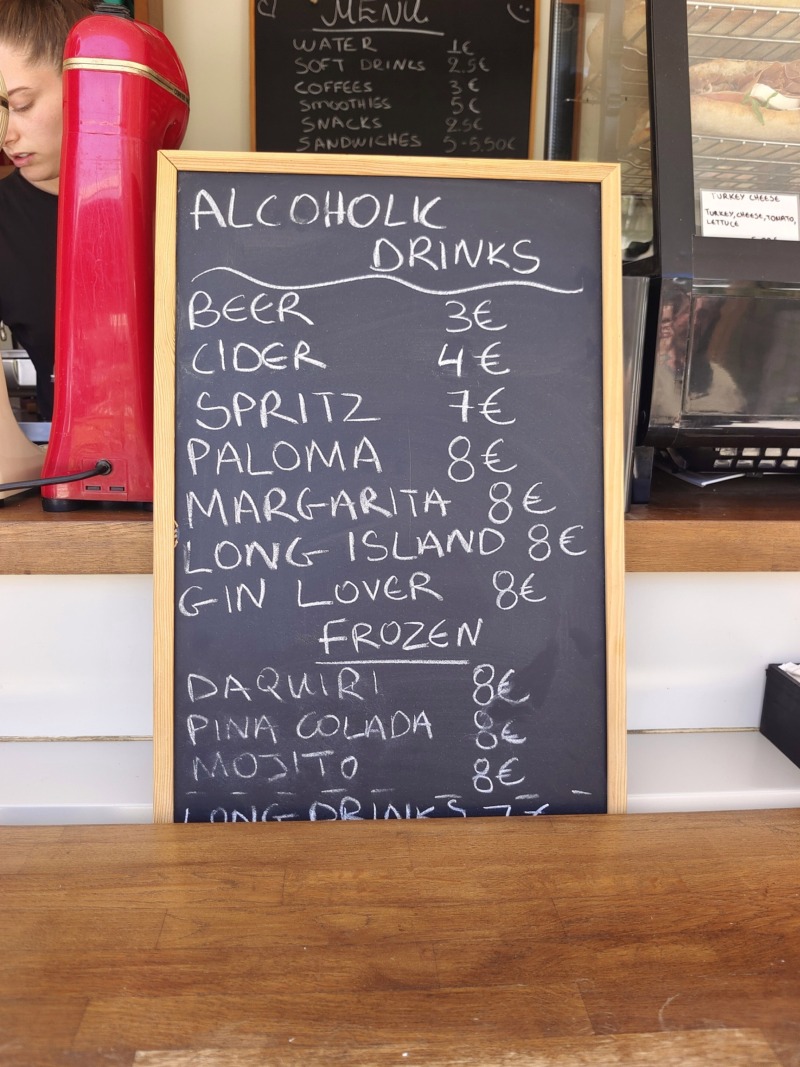 MENU
WATER 1€
SOFT DRINKS 2.5€
COFFEES 3€
SMOOTHIES 5€
SNACKS 2.5€
SANDWICHES 5-5,50€
TURKEY CHEESE
TURKEY, CHEESE, TOMATO,
LETTUCE
ALCOHOLIC
DRINKS
BEER 3€
CIDER 4€
SPRITZ 7€
PALOMA 8€
MARGARITA 8€
LONG ISLAND 8€
GIN LOVER 8€
FROZEN
DAQUIRI 8€
PINA COLADA 8€
MOJITO 8€
LONG DRINKS 7€